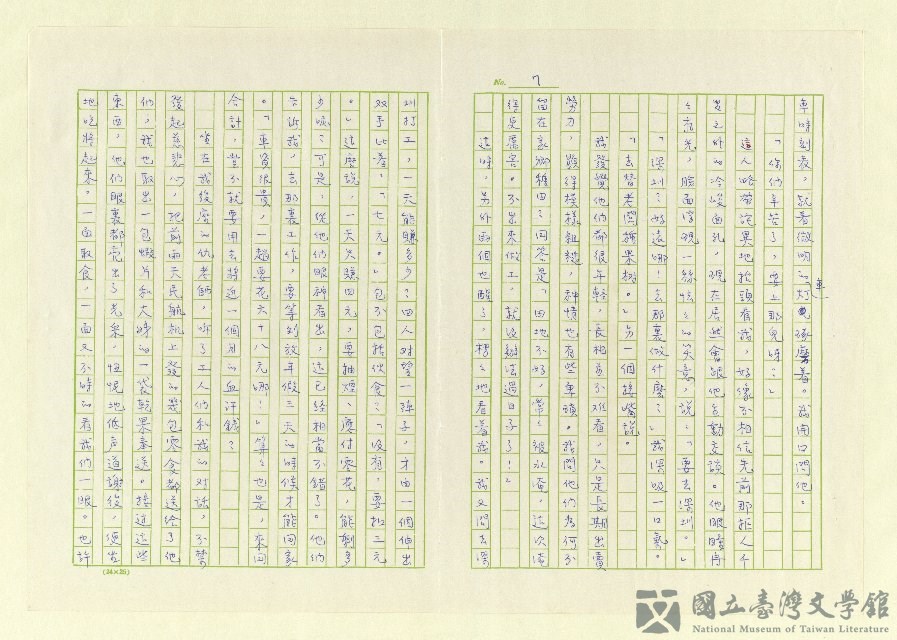 No. 7
車時刻表,就着微明的灯光琢磨着。我開口問他。
「你們辛苦了,要上那兒呀?」
這人略帶詫異地抬頭看我,好像不相信先前那拒人千
里之外的冷峻面孔,現在居然會跟他主動交談。他眼睛
亮光,臉面浮現一絲怯怯的笑意,說:「要去深圳。」
「深圳?好遠哪!去那裏做什麼?」我深吸一口氣。
「去替老闆種果樹。」另一個接嘴說。
我發覺他們都很年輕,長相亦不難看,只是長期出賣
勞力,顯得模樣粗糙,神情也有些卑瑣。我問他們為何不
留在家鄉種田?回答是「田地不好,常常被水淹,這次淹
得更厲害。不出來做工,就沒辦法過日子了!」
這時,另外兩個也醒了,楞楞地看着我。我又問去深
圳打工,一天能賺多少?四人對望一陣子,才由一個伸出
双手比着:「七元。」包不包括伙食?「沒有,要扣三元
。」這麼說,一天只賺四元,要抽煙、應付零花,能剩多
少呢?可是,從他們眼神看出,這已經相當不錯了。他們
告訴我,去那裏工作,要等到放年假三天的時候才能回家
。「車資很貴,一趟要花六十八元哪!」算算也是,來回
合計,豈不就要用去將近一個月的血汗錢?
坐在我後座的仇老師,聽了工人們和我的對話,不禁
發起慈悲心,把前兩天民航机上發的幾包零食都送給了他
們,我也取出一包蝦片和大嫂的一袋乾果奉送。接過這些
東西,他們眼裏都亮出了光采,忸怩地低声道謝後,便
地吃將起來。一面取食,一面又不時的看我們一眼。也許
(24×25)
國立臺灣文學館
National Museum of Taiwan Literature